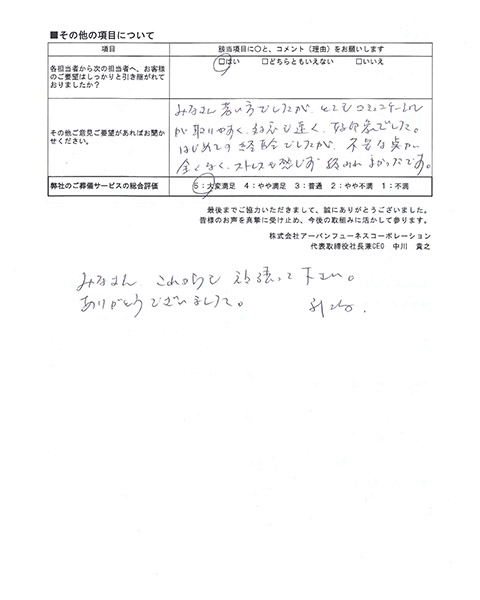 ■その他の項目について
項目 該当項目に〇と、コメント（理由）をお願いします
各担当者から次の担当者へ、お客様のご要望はしっかりと引き継がれておりましたか？ □はい □どちらともいえない □いいえ
その他ご意見ご要望があればお聞かせください。
みなさん若い方でしたが、とてもコミュニケーション
が取りやすく、対応も速く、好印象でした。
はじめての経験でしたが、不安な点が
全くなく、ストレスも感じず
よかったです。
弊社のご葬儀サービスの総合評価 5：大変満足 4：やや満足 3：普通 2：やや不満 1：不満
最後までご協力いただきまして、誠にありがとうございました。
皆様のお声を真摯に受け止め、今後の取組みに活かして参ります。
株式会社アーバンフューネスコーポレーション
代表取締役社長兼CEO 中川 貴之
みなさん、これからも頑張って下さい。
ありがとうございました。